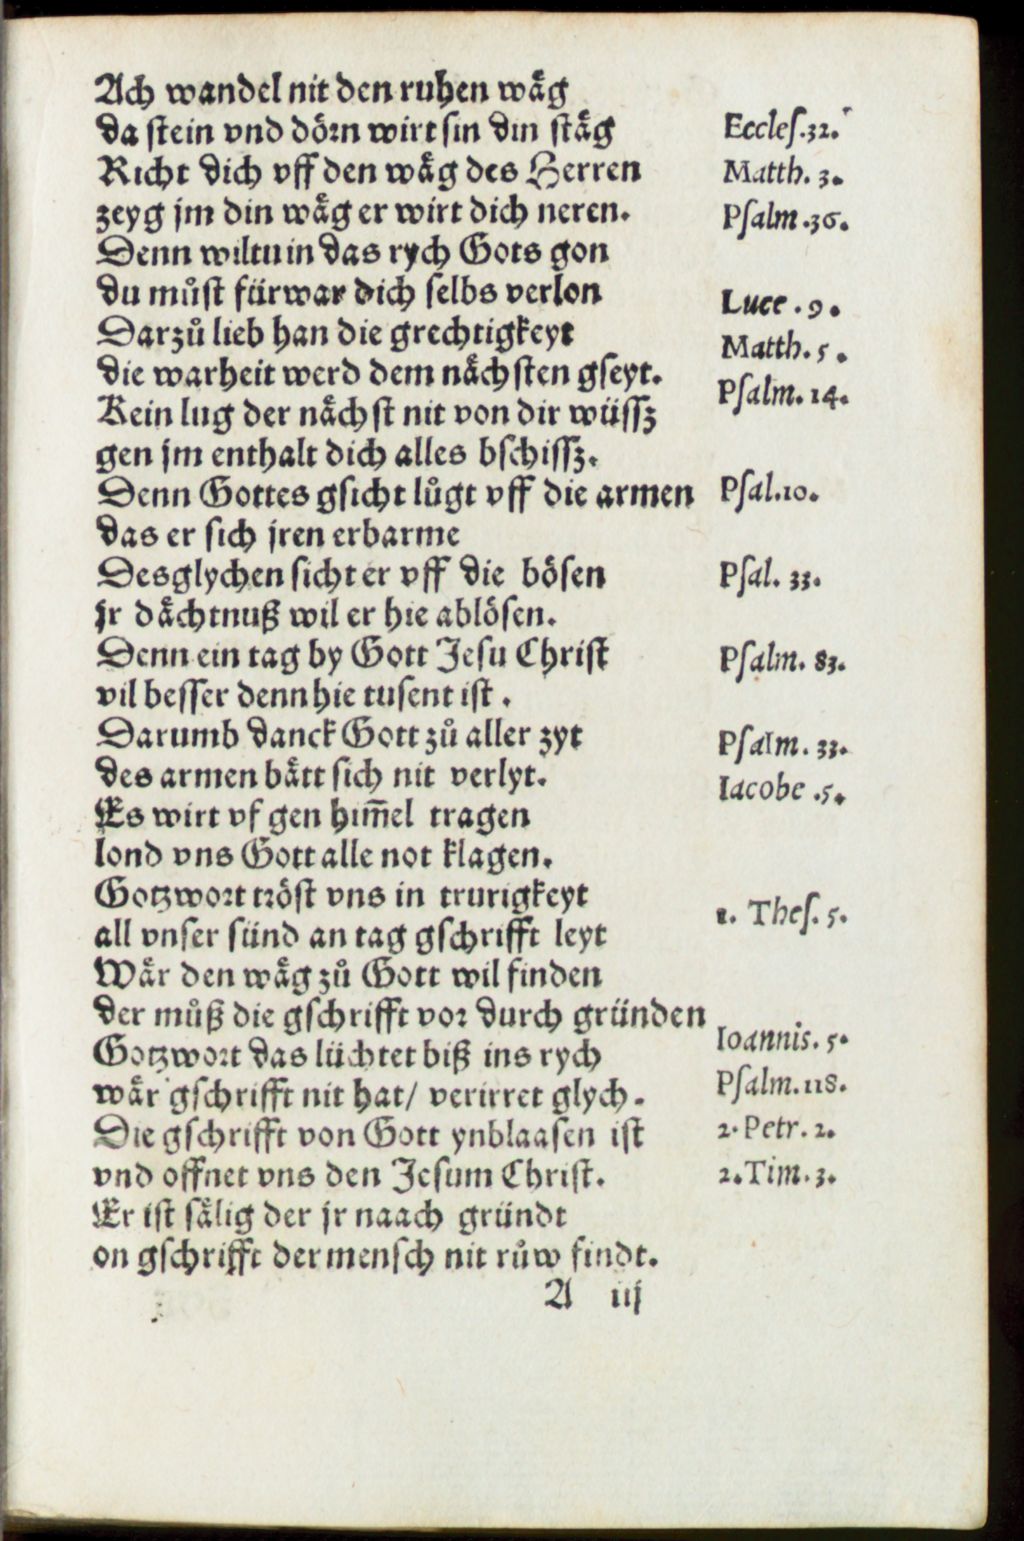 Ach wandel nit den ruhen wåg
da stein vnd dörn wirt sin din ståg
Eccles.32.
Richt dich vff den wåg des Herren
Matth. 3.
zeyg jm din wåg er wirt dich neren.
Psalm .36.
Denn wiltu in das rych Gots gon
du můst fürwar dich selbs verlon
Luce . 9.
Darzů lieb han die grechtigkeyt
Matth. 5.
die warheit werd dem nåchsten gseyt.
Psalm. 14.
Kein lug der nåchst nit von dir wüssz
gen jm enthalt dich alles bschissz.
Denn Gottes gsicht lůgt vff die armen
Psal.10.
das er sich jren erbarme
Desglychen sicht er vff die bösen
Psal. 33.
jr dåchtnuß wil er hie ablösen.
Denn ein tag by Gott Jesu Christ
Psalm. 83.
vil besser denn hie tusent ist .
Darumb danck Gott zů aller zyt
Psalm. 33.
des armen bått sich nit verlyt.
Iacobe .5.
Es wirt vf gen him̄el tragen
lond vns Gott alle not klagen.
Gotzwort tröst vns in trurigkeyt
1. Thes. 5.
all vnser sünd an tag gschrifft leyt
Wår den wåg zů Gott wil finden
der můß die gschrifft vor durch gründen
Ioannis. 5.
Gotzwort das lüchtet biß ins rych
Psalm.118.
wår gschrifft nit hat/ verirret glych.
Die gschrifft von Gott ynblaasen ist
2. Petr. 2.
vnd offnet vns den Jesum Christ.
2.Tim. 3.
Er ist sålig der jr naach gründt
on gschrifft der mensch nit růw findt.
A iij